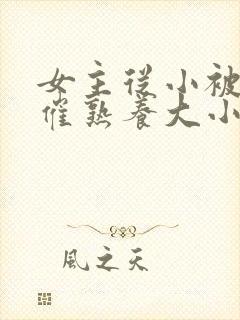 女主從小被
催熟養大小
風之天